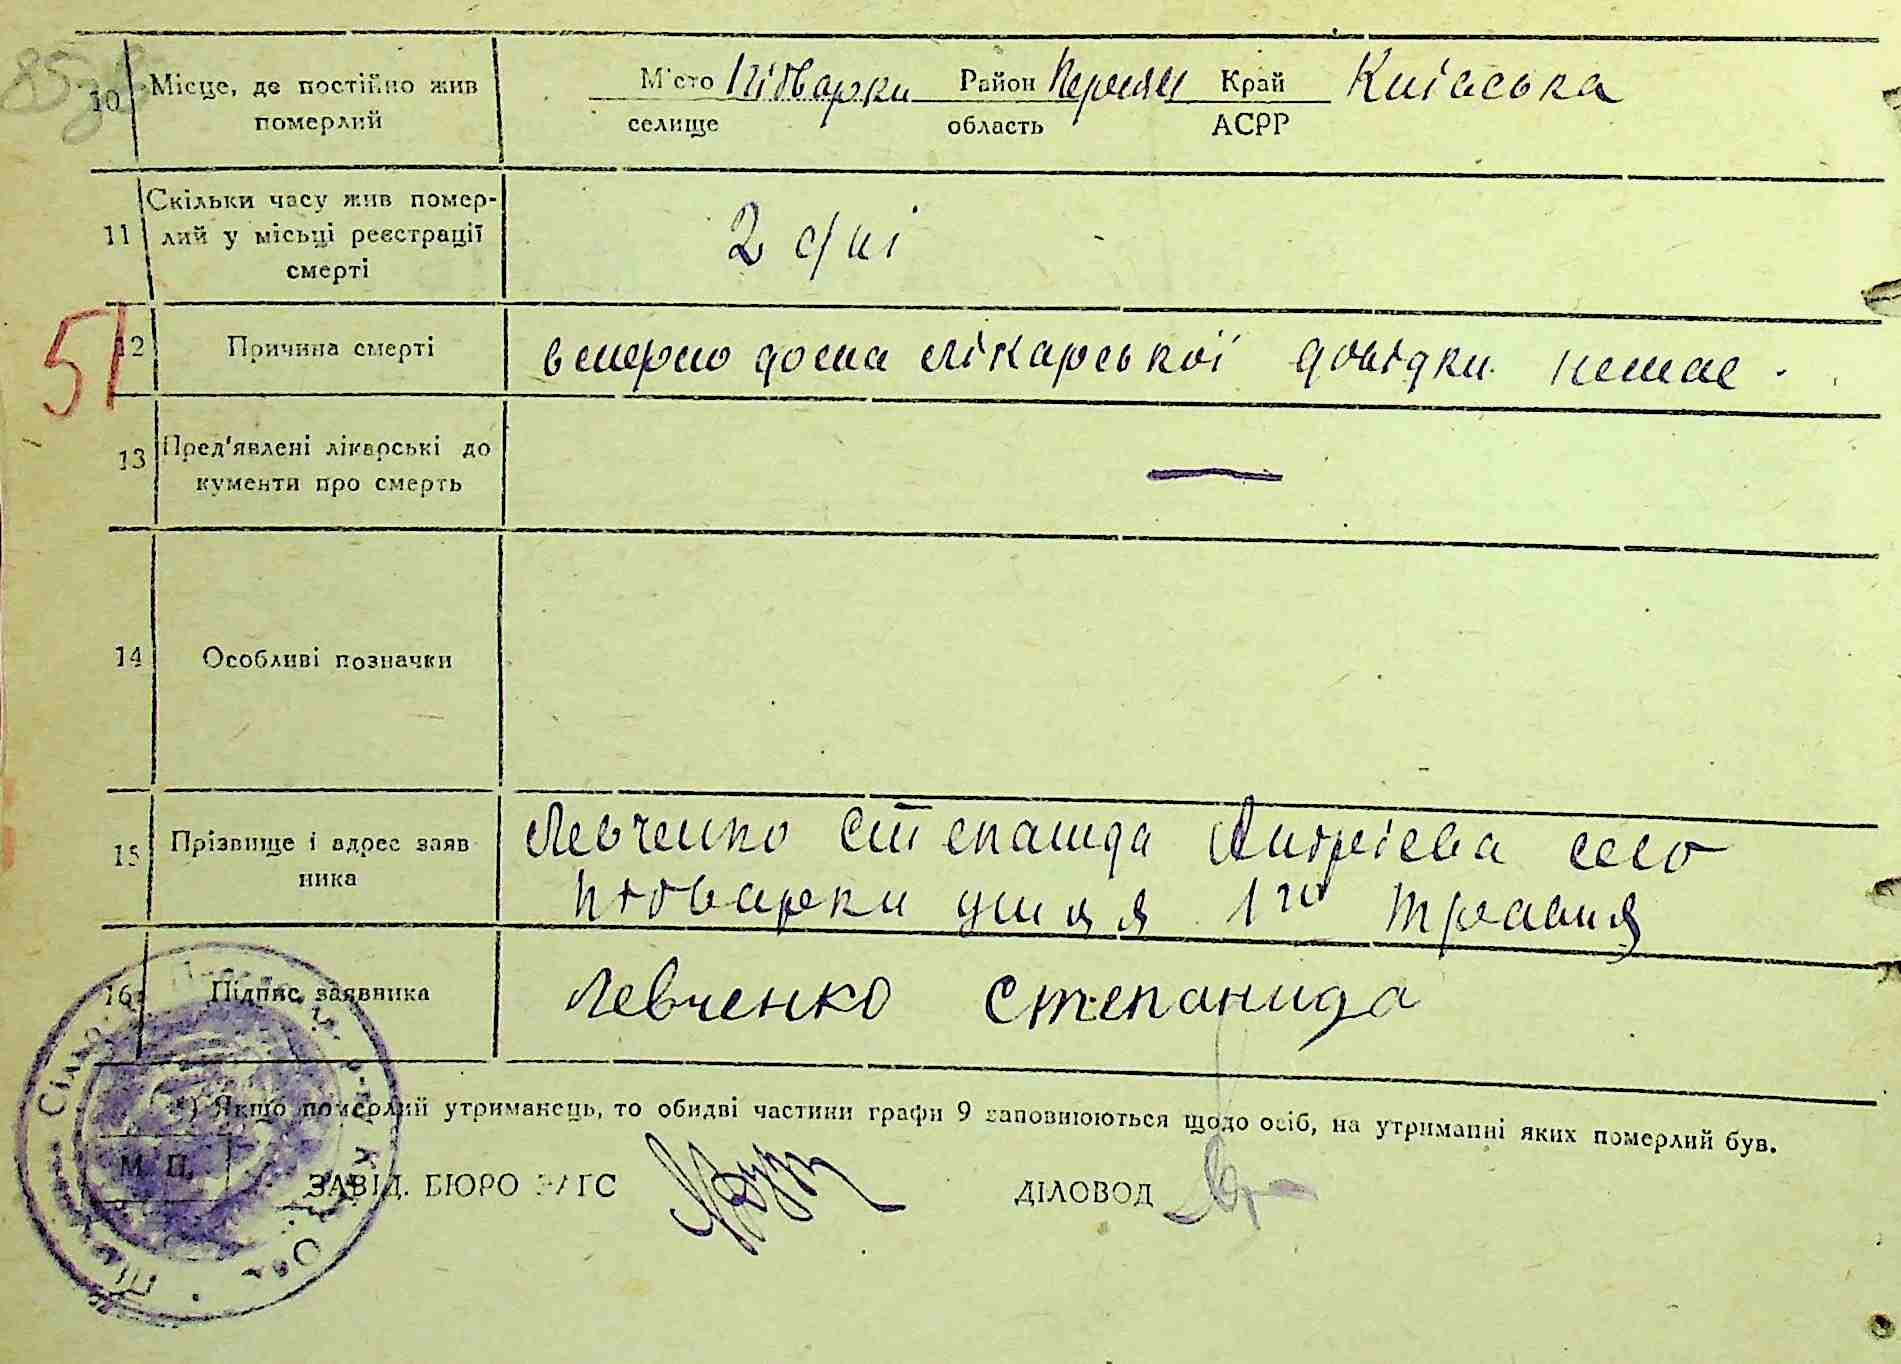 85
10 Місце, де постійно жив М'сто Підварки Район Переясл Край Київська
померлий селище область АСРР
Скільки часу жив помер-
11 лий у місьці реєстрації 2 дні
смерті
51
12 Причина смерті вмерло дома лікарської довідки немає.
13 Пред'явлені лікарські до —
кументи про смерть
14 Особливі позначки
15 Прізвище і адрес заяв Левченко Степанида Андрієва село
ника Підварки улиця 1го травня
16 Підпис заявника Левченко Степанида
*) Якщо померлий утриманець, то обидві частини графи 9 заповнюються щодо осіб, на утриманні яких померлий був.
М. П.
ЗАВІД. БЮРО ЗАГС ДІЛОВОД